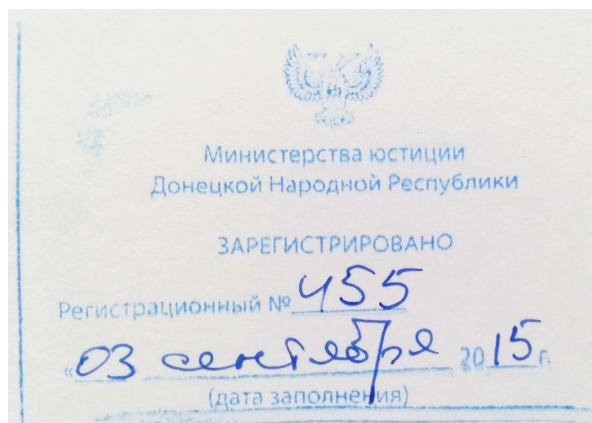 Министерства юстиции
Донецкой Народной Республики
ЗАРЕГИСТРИРОВАНО
Регистрационный № 455
"03 сентября 2015 г.
(дата заполнения)